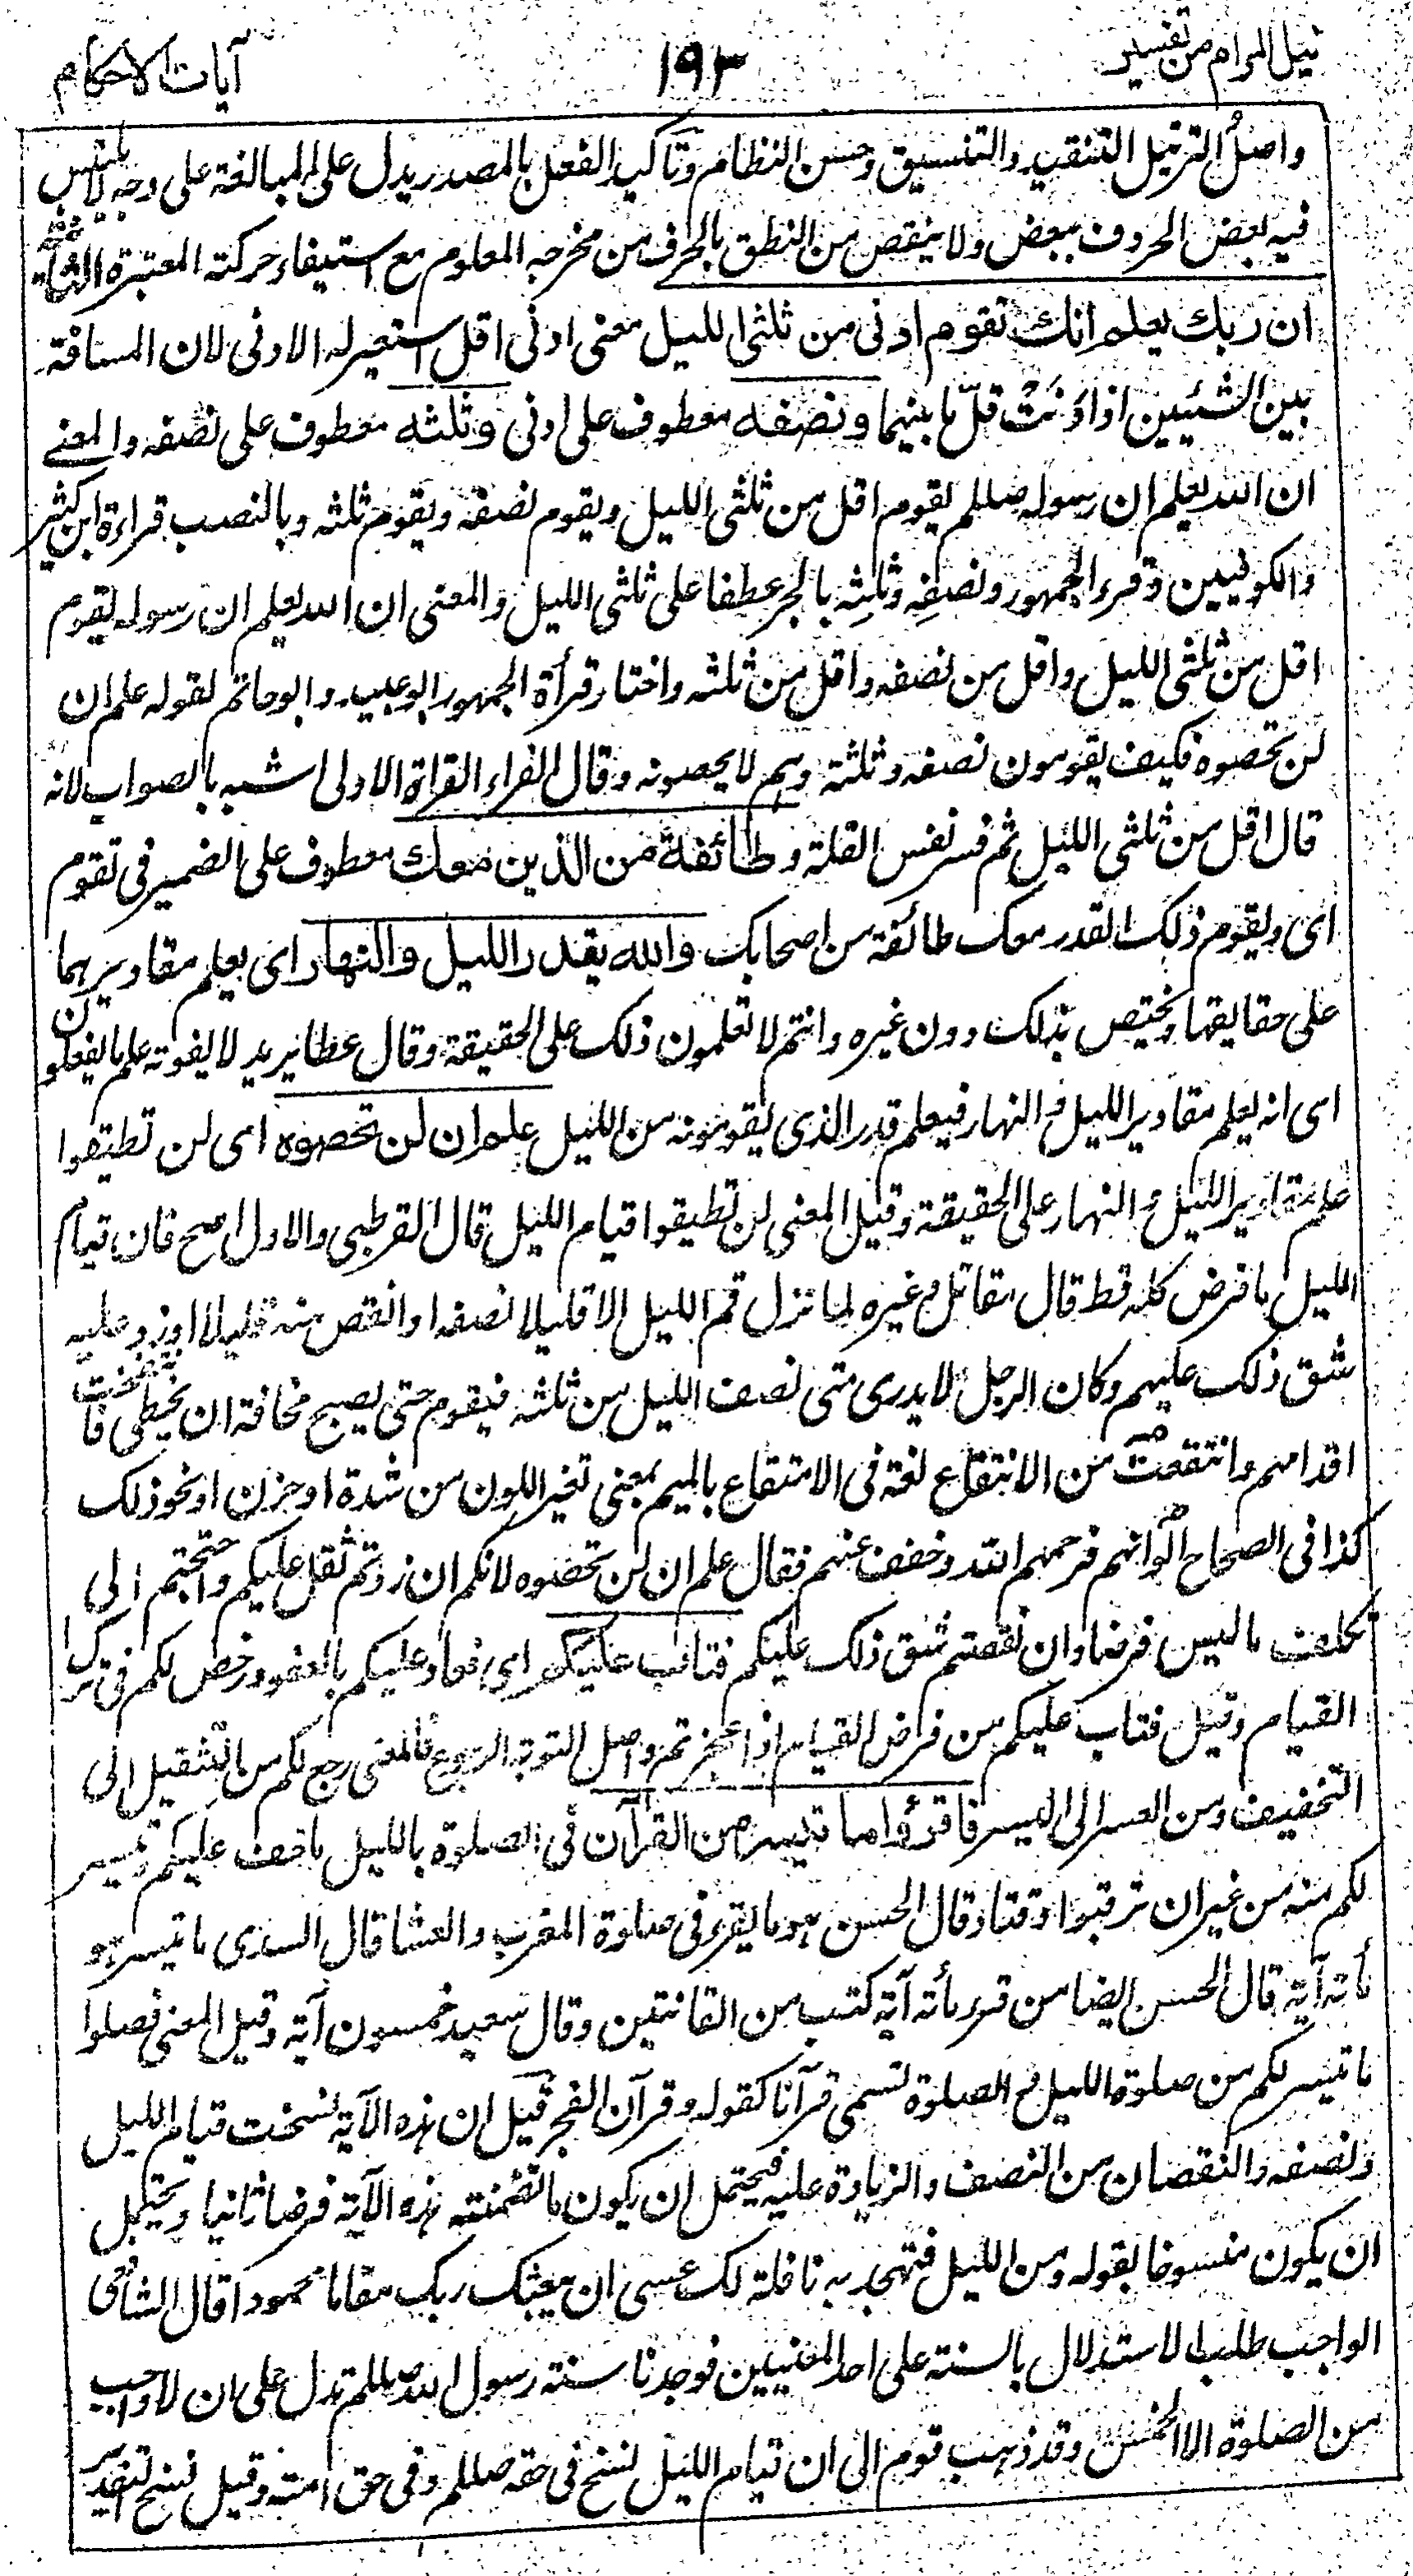 نيل المرام من تفسير ١٩٣ آيات الاحكام
واصل الترتيل التنقيد والتنسيق وحسن النظام وتاكيد الفعل بالمصدر يدل على المبالغة على وجه لا يلتبس
فيه بعض الحروف ببعض ولا ينقص من النطق بالحرف من مخرجه المعلوم مع استيفاء حركته المعتبرة الثانية
ان ربك يعلم انك تقوم ادنى من ثلثى الليل معنى ادنى اقل استعير له الادنى لان المسافة
بين الشيئين اذا دَنَتْ قلّ ما بينهما ونصفه معطوف على ادنى وثلثه معطوف على نصفه والمعنے
ان الله يعلم ان رسوله صللم يقوم اقل من ثلثى الليل ويقوم نصفه ويقوم ثلثه وبالنصب قراءة ابن كثير
والكوفيين وقرء الجمهور ونصفِه وثلثِه بالجر عطفا على ثلثى الليل والمعنى ان الله يعلم ان رسوله يقوم
اقل من ثلثى الليل واقل من نصفه واقل من ثلثه واختار قرأة الجمهور ابو عبيد وابو حاتم لقوله علم ان
لن تحصوه فكيف يقومون نصفه وثلثة وہم لا يحصونه وقال الفراء القراة الاولى اشبه بالصواب لانه
قال اقل من ثلثى الليل ثم فسر نفس القلة وطائفة من الذين معك معطوف على الضمير فى تقوم
اى ويقوم ذلك القدر معك طائفة من اصحابك والله يقدر الليل والنهار اى يعلم مقاديرہما
على حقايقها ويختص بذلك دون غيره وانتم لا تعلمون ذلك على الحقيقة وقال عطا يريد لا يفوته علم ما يفعلون
اى انه يعلم مقادير الليل والنهار فيعلم قدر الذى يقومونه من الليل علم ان لن تحصوه اى لن تطيقوا
علم مقادير الليل والنهار على الحقيقة وقيل المعنى لن تطيقوا قيام الليل قال القرطبى والاول اصح فان قيام
الليل ما فرض كله قط قال مقاتل وغيره لما نزل قم الليل الا قليلا نصفه او انقص منه قليلا او زد عليه
شق ذلك عليهم وكان الرجل لا يدرى متى نصف الليل من ثلثه فيقوم حتى يصبح مخافة ان يخطى فانتفخت
اقدامهم وانتقعت من الانتقاع لغة فى الامتقاع بالميم بمعنى تغير اللون من شدة او حزن او نحو ذلك
كذا فى الصحاح الوانهم فرحمهم الله وخفف عنهم فقال علم ان لن تحصوه لانكم ان زدتم ثقل عليكم واحتجتم الى
تكلف ما ليس فرضا وان نقصتم شق ذلك عليكم فتاب عليكم اى فعاد عليكم بالعفو ورخص لكم فى ترك
القيام وقيل فتاب عليكم من فرض القيام اذا عجزتم واصل التوبة الرجوع فالمعنى رجع لكم من التثقيل الى
التخفيف ومن العسر الى اليسر فاقرؤا ما تيسر من القرآن فى الصلوة بالليل ما خف عليكم وتيسر
لكم منه من غير ان ترقبوا وقتا وقال الحسن ہو ما يقرء فى صلوة المغرب والعشا قال السدى ما تيسر ہو
مأته آية قال الحسن ايضا من قرء مأته آية كتب من القانتين وقال سعيد خمسون آية وقيل المعنى فصلوا
ما تيسر لكم من صلوة الليل والصلوة تسمى قرآنا كقوله وقرآن الفجر قيل ان ہذه الآية نسخت قيام الليل
ونصفه والنقصان من النصف والزيادة عليه فيحتمل ان يكون ما تضمنته ہذه الآية فرضا ثانيا ويحتمل
ان يكون منسوخا بقوله ومن الليل فتهجد به نافلة لك عسى ان يبعثك ربك مقاما محمودا قال الشافعى
الواجب طلب الاستدلال بالسنة على احد المعنيين فوجدنا سنة رسول الله صللم تدل على ان لا واجب
من الصلوة الا الخمس وقد ذہب قوم الى ان قيام الليل نسخ فى حقه صللم وفى حق امته وقيل نسخ التقدير